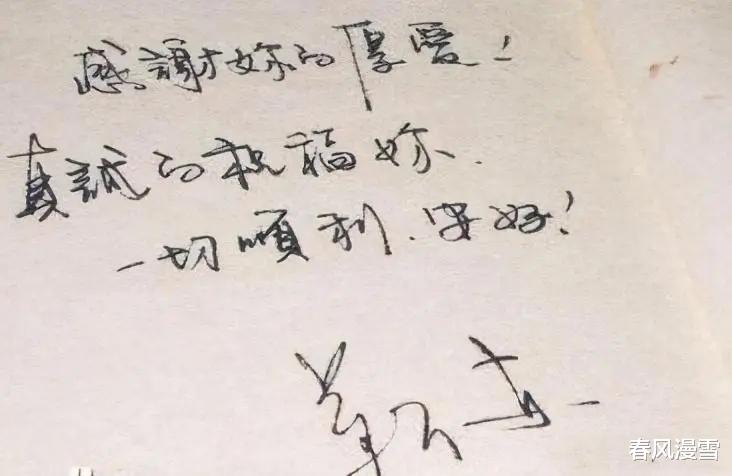 感謝妳的厚愛！
真誠的祝福妳、
一切順利、安好！
春风漫雪